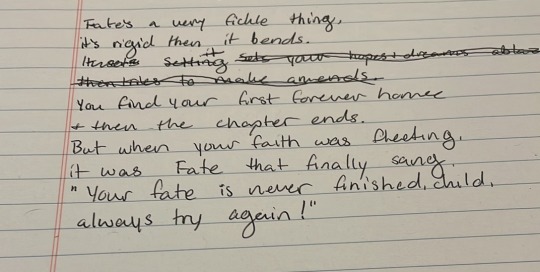 Fate's a very fickle thing,
it's rigid then it bends.
it setting sets your hopes + dreams
then tries to make amends.
You find your first forever home
+ then the chapter ends.
But when your faith was fleeting,
it was Fate that finally sang,
"Your fate is never finished, child,
always try again!"